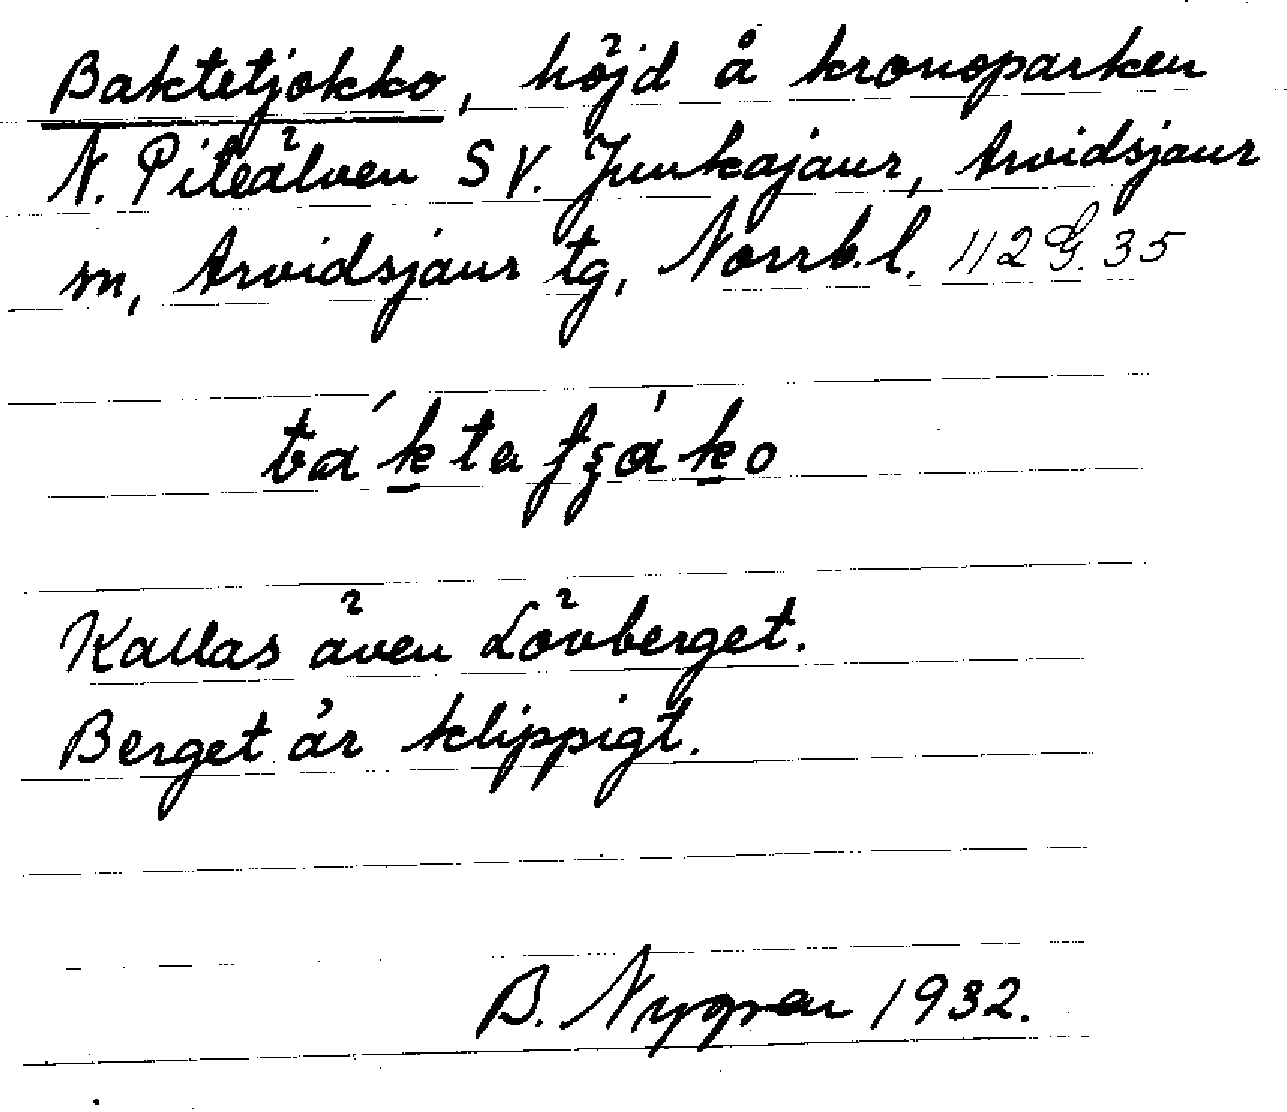 Baktetjokko, höjd å kronoparken
N. Piteälven SV. Junkajaur, Arvidsjaur
sn, Arvidsjaur tg, Norrb. l. 112 G. 35
Kallas även Lövberget.
Berget är klippigt.
B. Nygren 1932.